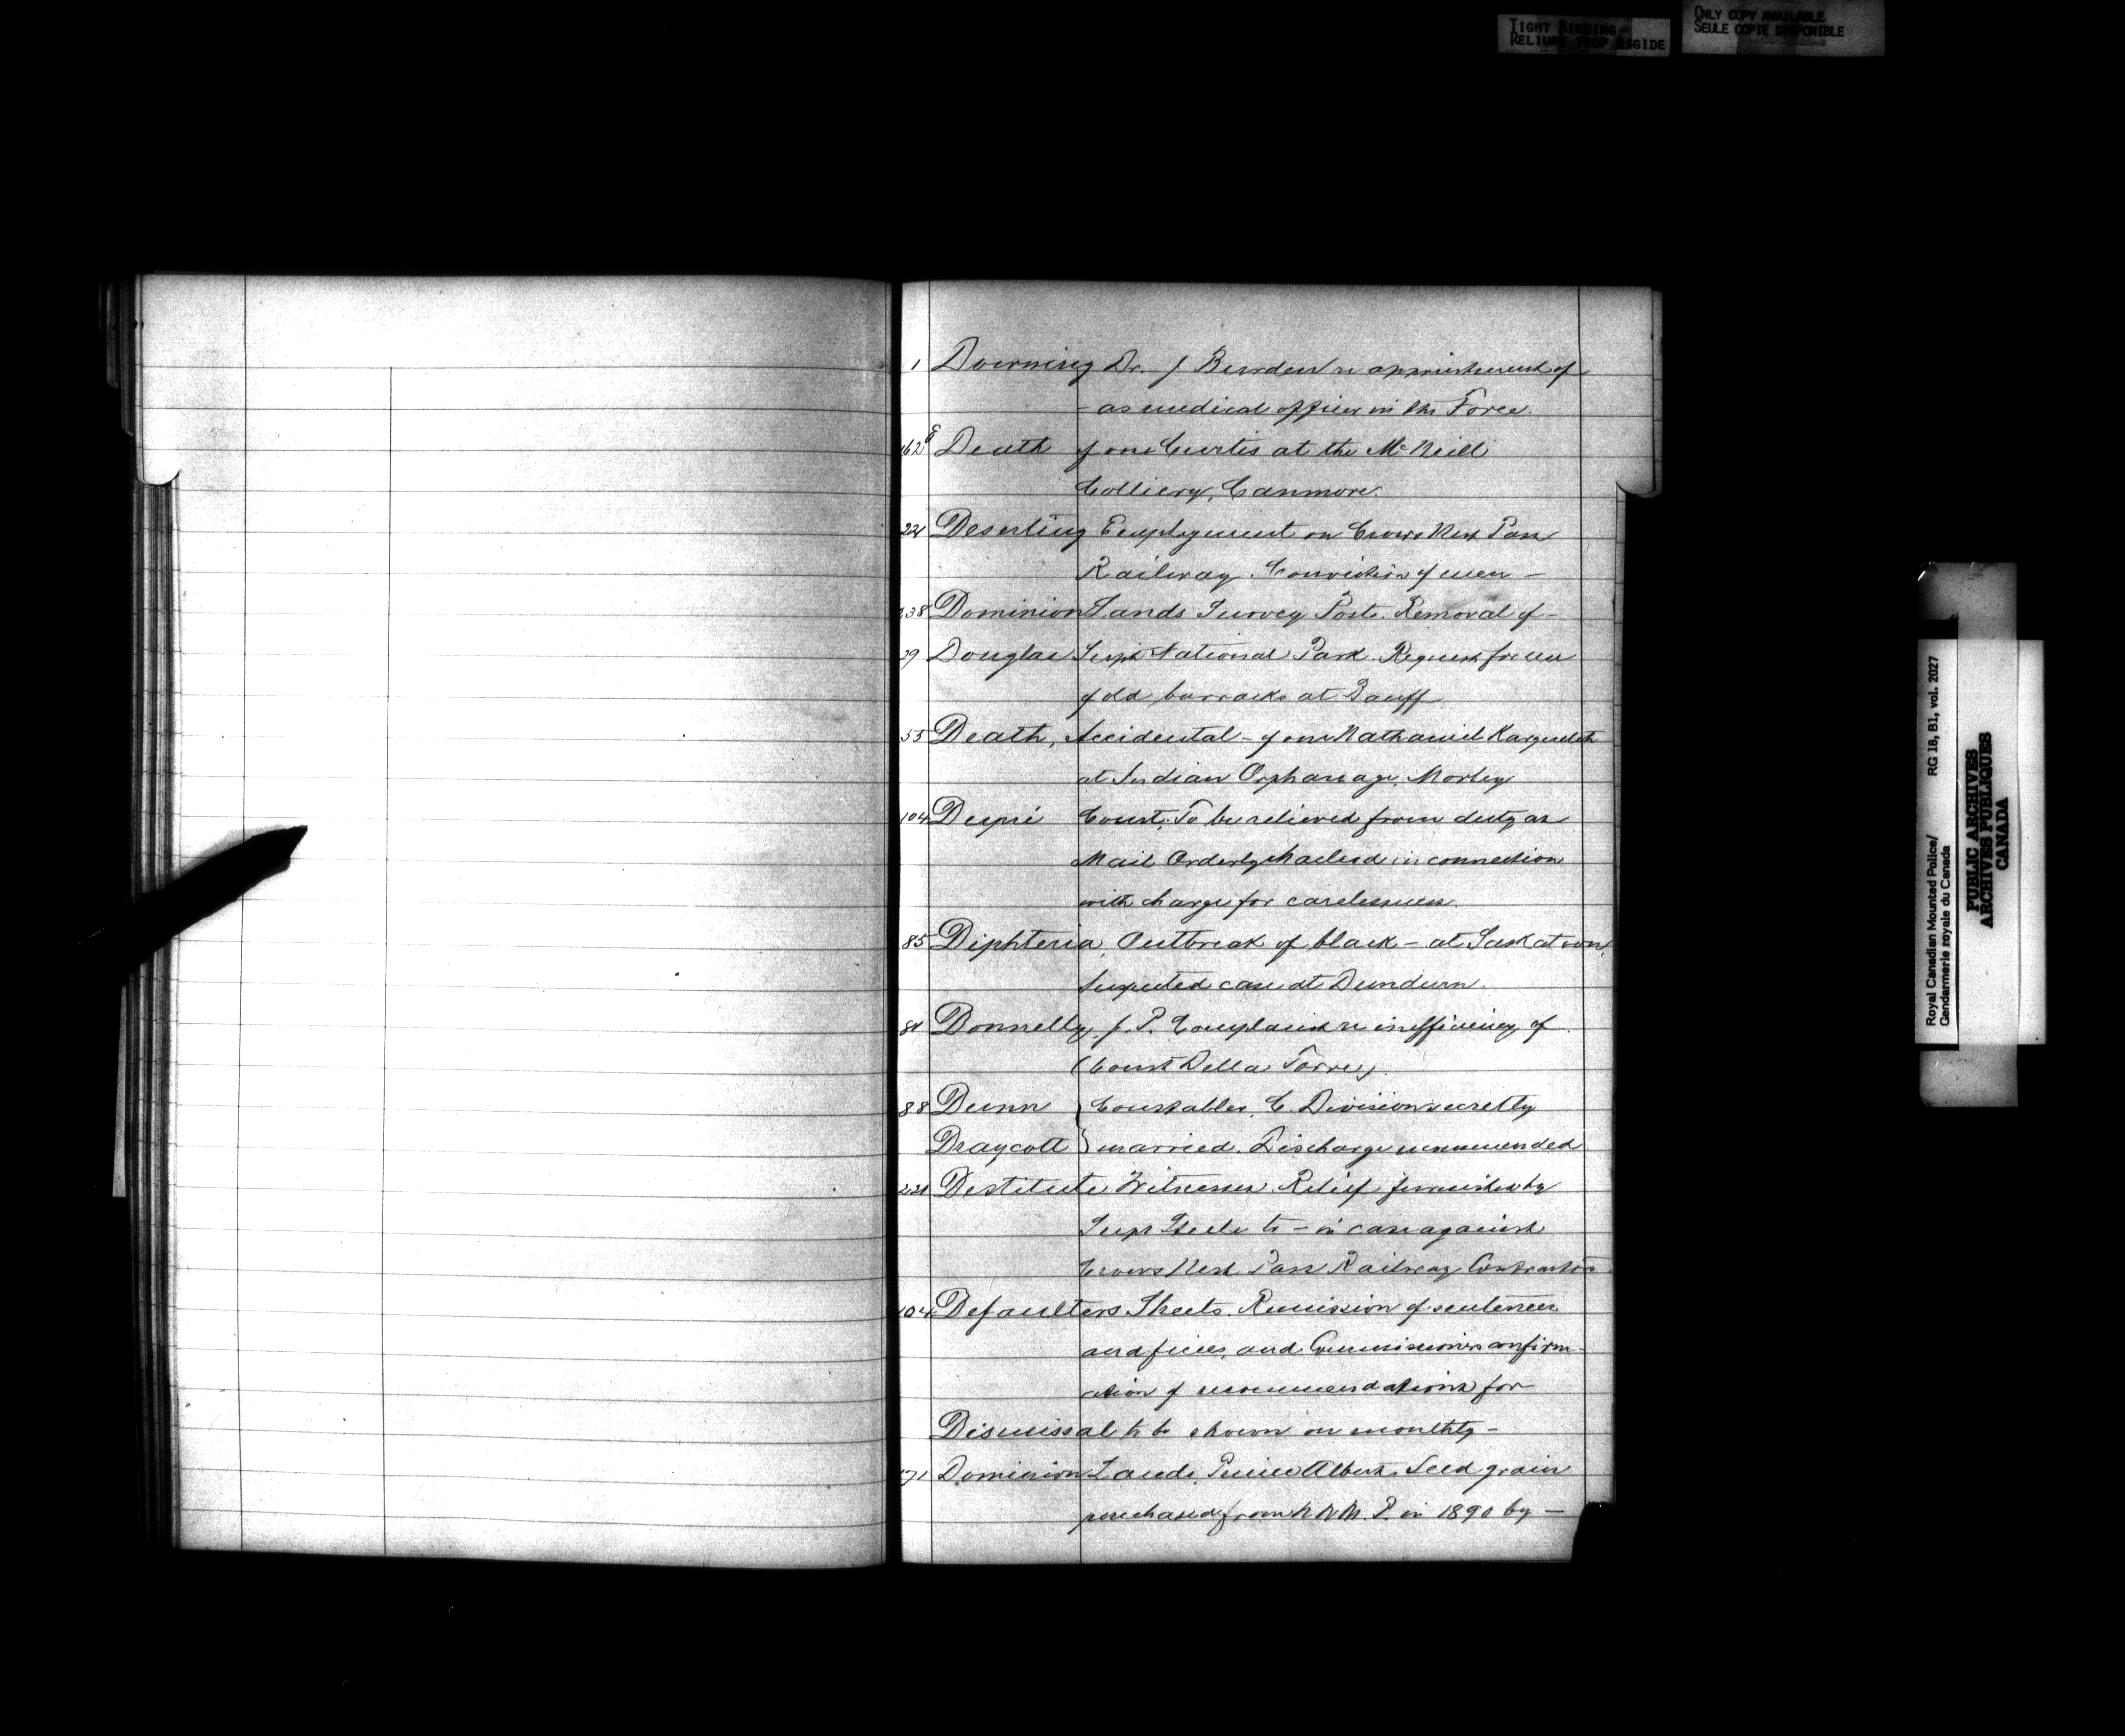 TIGHT BINDING
RELIURE TROP RIGIDE
ONLY COPY AVAILABLE
SEULE COPIE DISPONIBLE
1 Downing Dr. J Burden re appointment of
- as medical officer in the Force.
162 Death of one Curtis at the McNeill
Colliery, Canmore.
Deserting Employment on Crows Nest Pass
Railway. Conviction of men -
238 Dominion Lands Survey Posts. Removal of -
29 Douglas Supt National Park. Request for use
of old barracks at Banff
55 Death, Accidental - of one Nathaniel
at Indian Orphanage, Morley
104 Const. To be relieved from duty as
Mail Orderly Macleod in connection
with charge for carelessness.
85 Diphteria, Outbreak of black - at Saskatoon,
Suspected case at Dundurn.
84 Donnelly, J. P. Complaint re inefficiency of
(Const Della Torre).
88 Dunn } Constables, E. Division secretly
Draycott } married. Discharge recommended
Destitute Witnesses. Relief furnished by
Supt Steele to - in case against
Crows Nest Pass Railway Contractors
104 Defaulters Sheets. Remission of sentences
and fines, and Commissioners confirm-
ation of recommendations for
Dismissal to be shown on monthly -
171 Dominion Lands, Prince Albert. Seed grain
purchased from N.W.M.P. in 1890 by -
Royal Canadian Mounted Police/
Gendarmerie royale du Canada
RG 18, B1, vol. 2027
PUBLIC ARCHIVES
ARCHIVES PUBLIQUES
CANADA